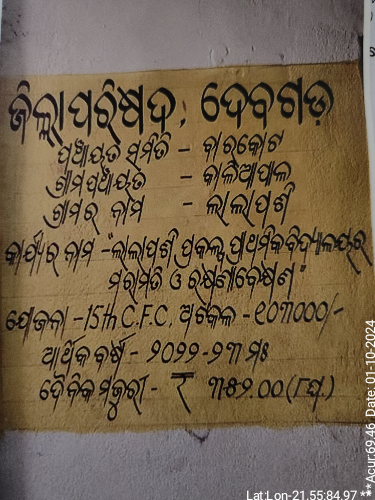 ଜିଲ୍ଲାପରିଷଦ, ଦେବଗଡ଼
ପଞ୍ଚାୟତ ସମିତି - ବାରକୋଟ
ଗ୍ରାମପଞ୍ଚାୟତ - କାଳିଆପାଳ
ଗ୍ରାମର ନାମ - ଲାଲାପଶି
କାର୍ଯ୍ୟର ନାମ - ଲାଲାପଶି ପ୍ରକଳ୍ପ ପ୍ରାଥମିକ ବିଦ୍ୟାଳୟର
ମରାମତି ଓ ରକ୍ଷଣାବେକ୍ଷଣ
ଯୋଜନା - 15th C.F.C, ଅଟକଳ - ୧୦୩୦୦୦/-
ଆର୍ଥିକ ବର୍ଷ - ୨୦୨୨-୨୩ ମଃ
ଦୈନିକ ମଜୁରୀ - ₹ ୩୫୨.00
Lat:Lon-21.55:84.97 ***Acur:69.46 Date: 01-10-2024